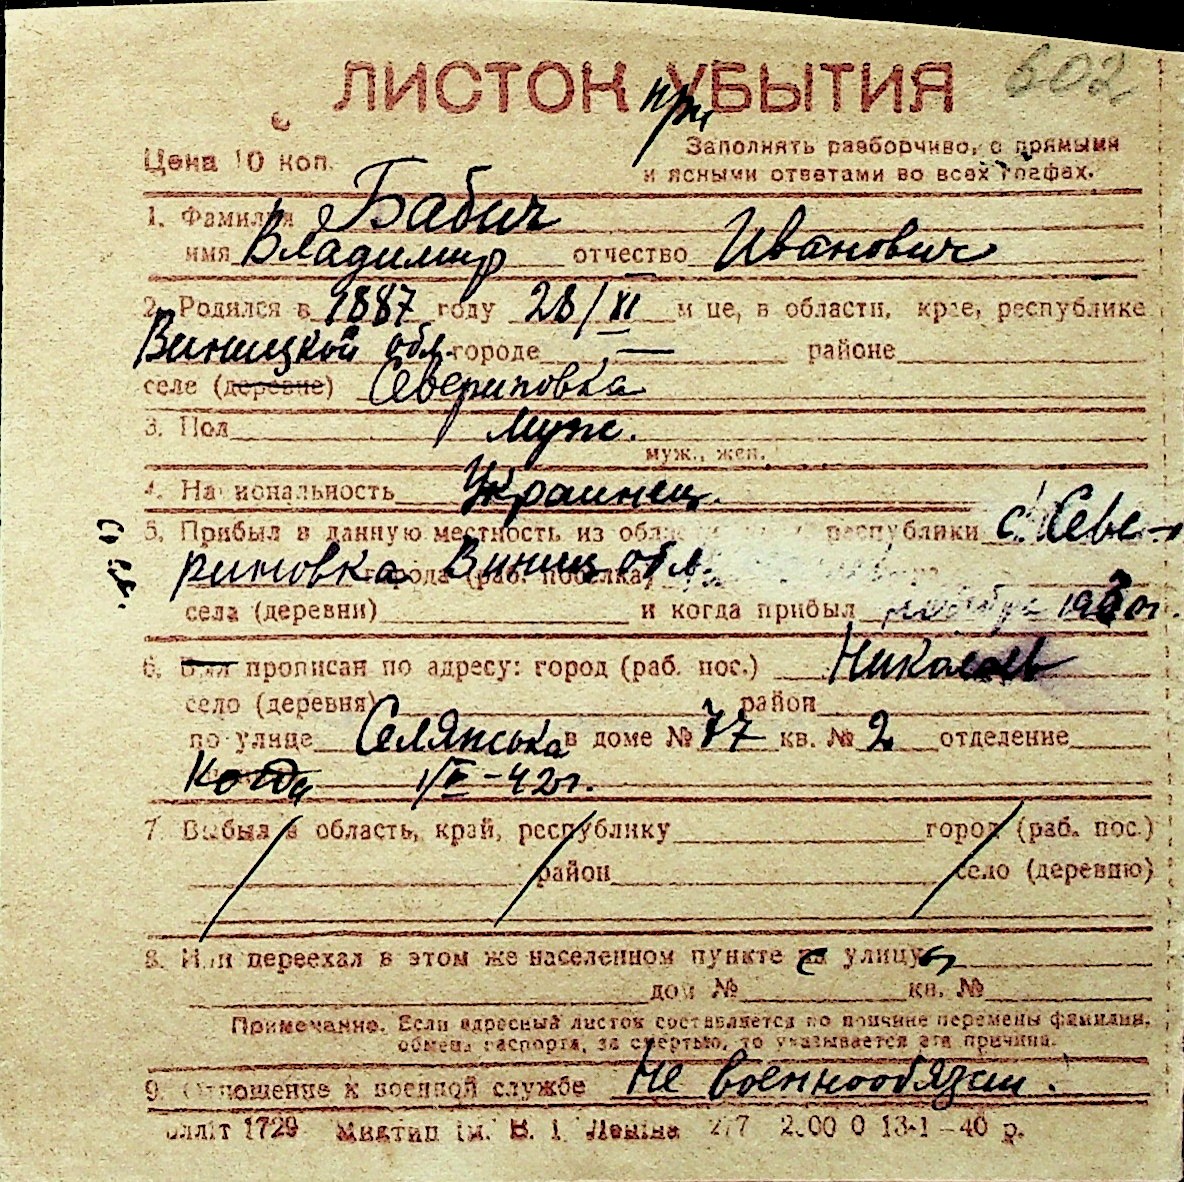 602
ЛИСТОК при УБЫТИЯ
Заполнять разборчиво, с прямыми
Цена 10 коп.
и ясными ответами во всех графах.
1. Фамилия Бабич
имя Владимир отчество Иванович
2. Родился в 1887 году 28/XI м-це, в области, крае, республике
Виницкой обл. городе — районе
селе (деревне) Севериновка
3. Пол Муж.
муж., жен.
4. Национальность Украинец.
5. Прибыл в данную местность из области республики с. Севе-
риновка города (раб. поселка) Виниц обл.
села (деревни) и когда прибыл 1930г.
6. прописан по адресу: город (раб. пос.) Николаев
село (деревня) район
по улице Селянська в доме № 77 кв. № 2 отделение
Когда 42г.
7. Выбыл в область, край, республику город (раб. пос.)
район село (деревню)
8. Или переехал в этом же населенном пункте с улицу
дом № кв. №
Примечание. Если адресный листок составляется по причине перемены фамилии,
обмена паспорта, за смертью, то указывается эта причина.
9. Отношение к военной службе Не военнообязан.
1729 ім. В. І. Леніна 13-1-40 р.